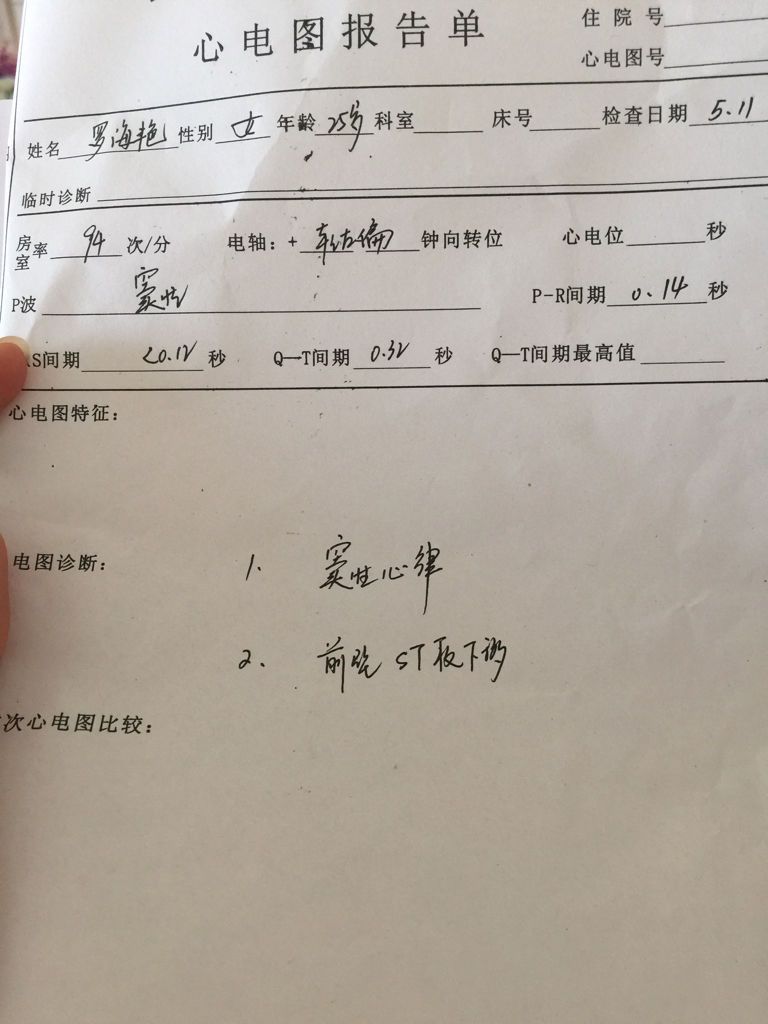 心电图报告单
住院号
心电图号
姓名 罗海艳 性别 女 年龄 25岁 科室 床号 检查日期 5.11
临时诊断
房室率 94 次/分 电轴：+ 钟向转位 心电位 秒
P波 窦性 P-R间期 0.14 秒
S间期 <0.12 秒 Q—T间期 0.32 秒 Q—T间期最高值
心电图特征：
电图诊断： 1. 窦性心律
2. 前壁 ST段下移
次心电图比较：